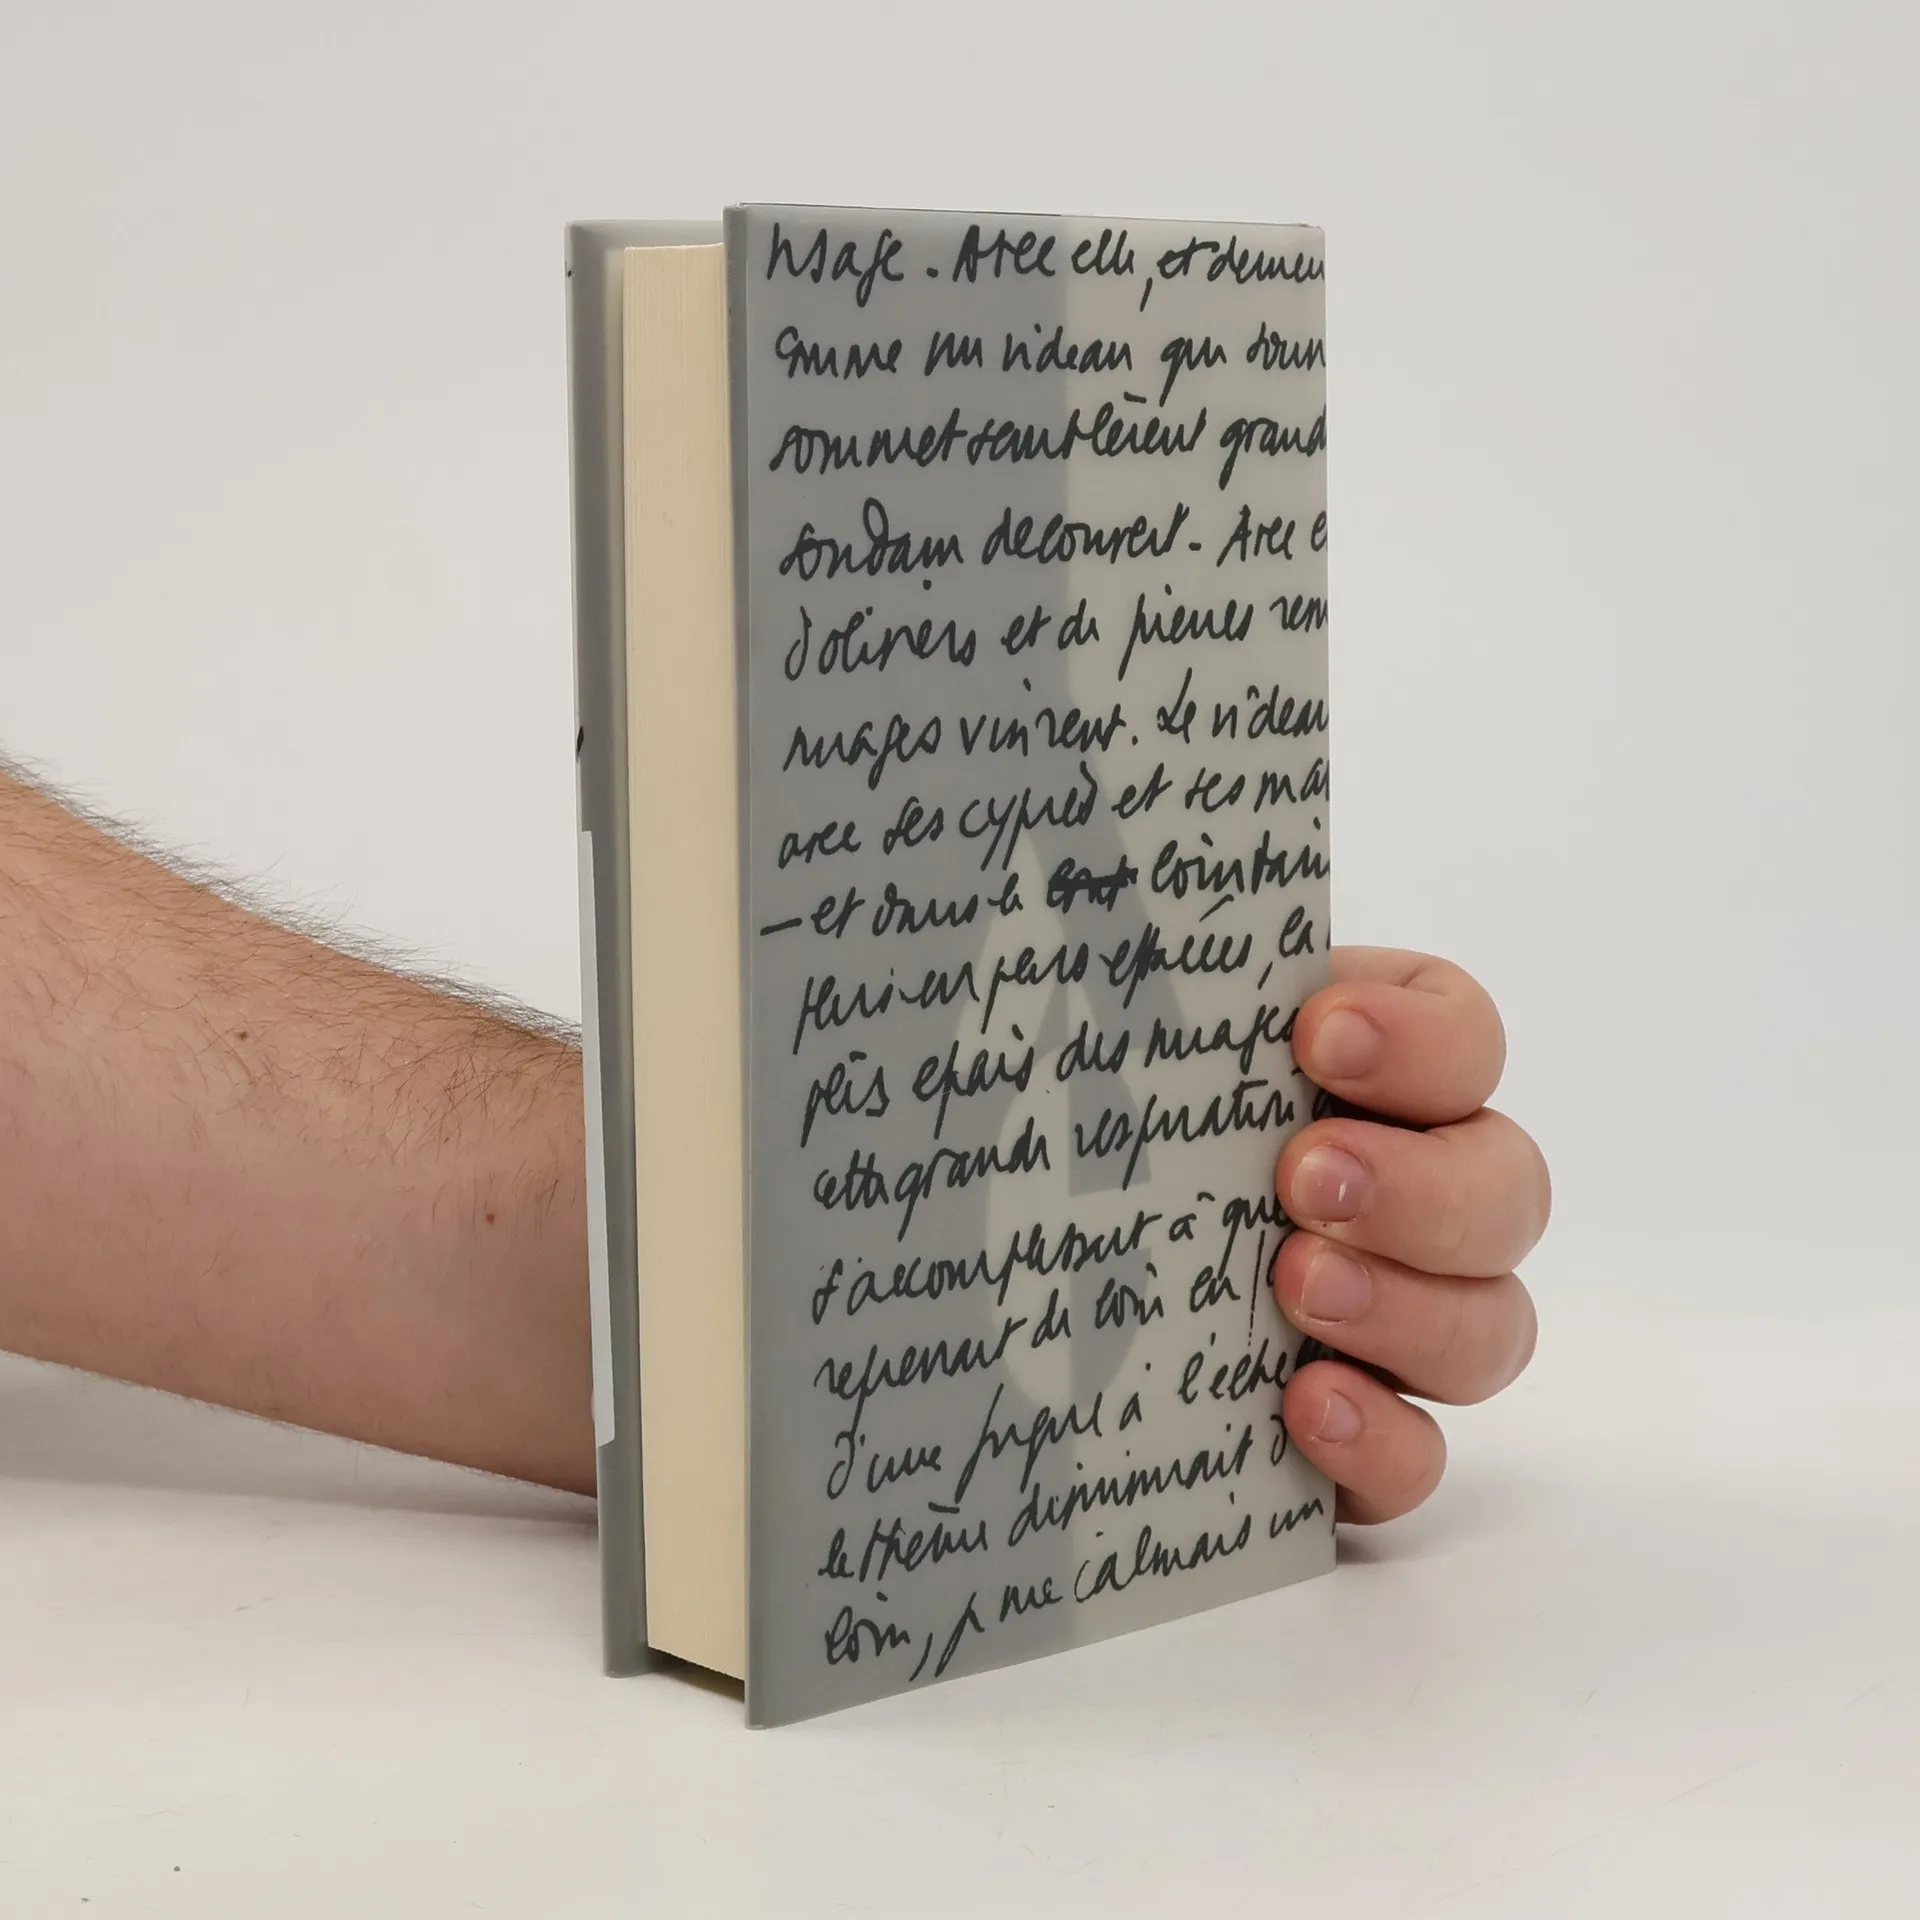 visage. Avec elle, et derriè
comme un rideau qui s'ouv
sommet semblèrent grand
soudain découvert. Avec e
d'oliviers et de pierres
nuages vinrent. Le rideau
avec ses cyprès et ses
— et dans le lointain
plis épais des nuages
cette grande respiration
s'accomplissait à que
reprenait de loin en
d'une fugue à l'éche
le thème diminuait d
loin, je me calmais un